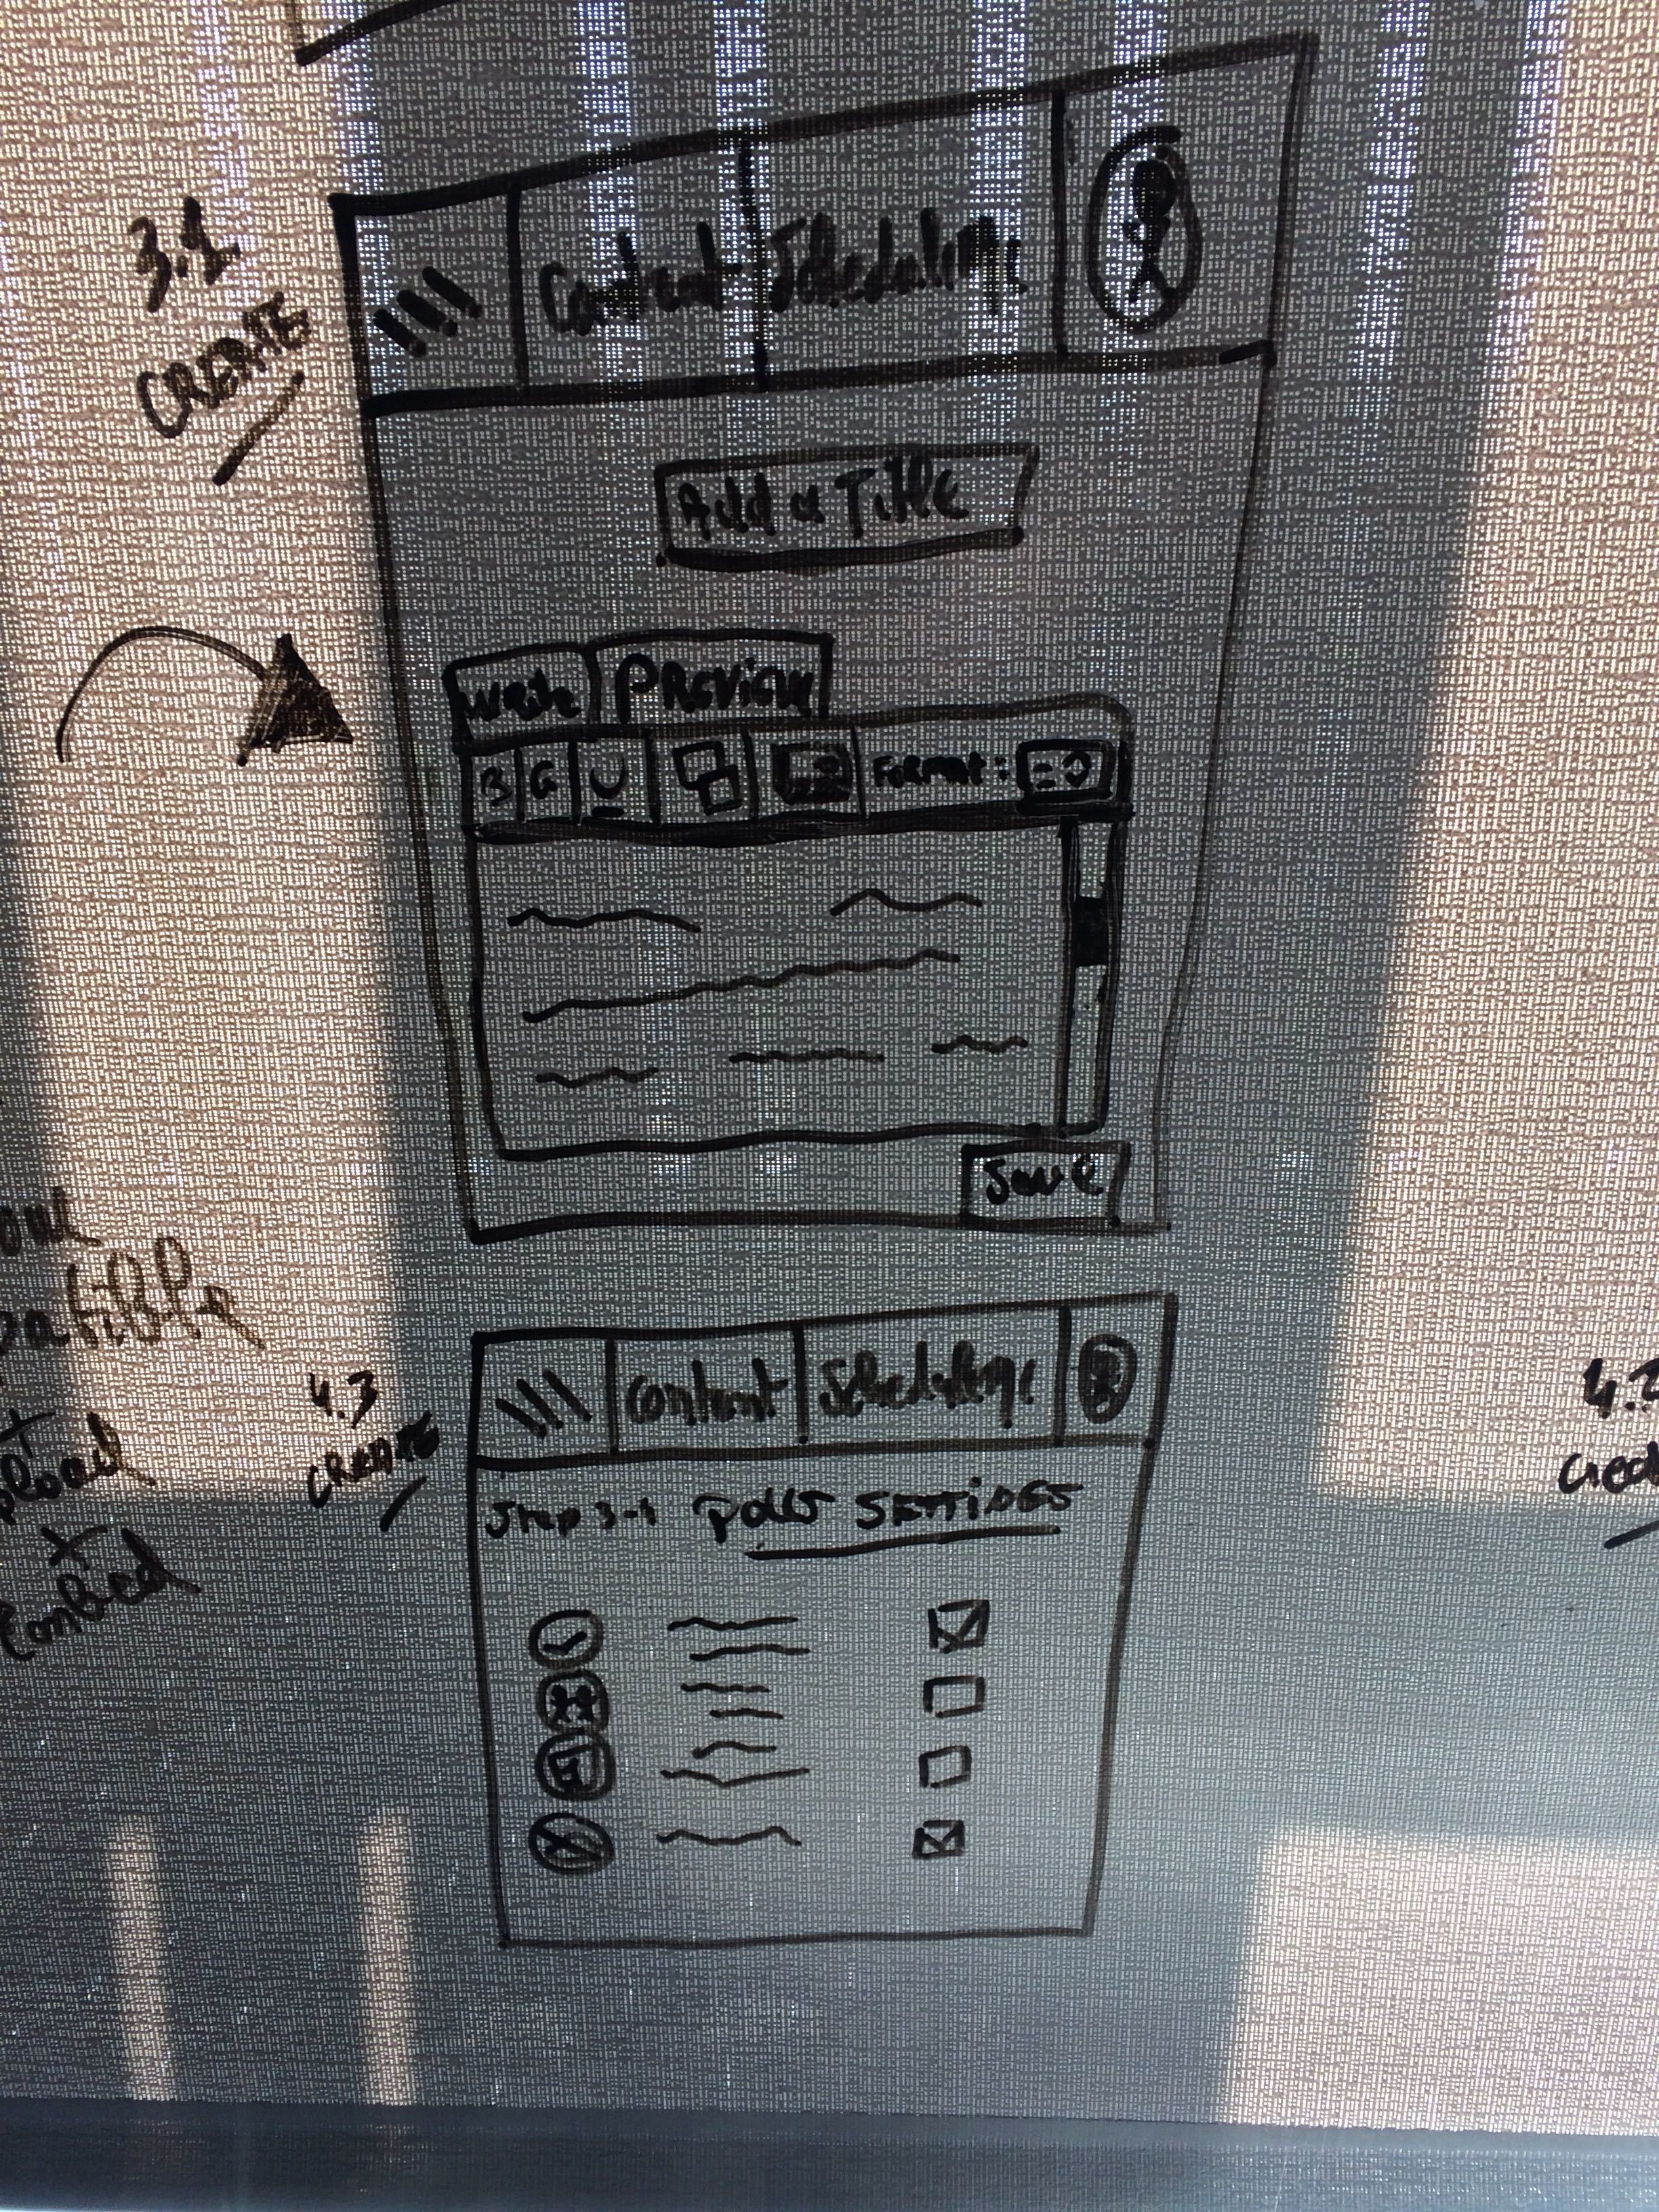 3.1
CREATE
Content Scheduling
Add a Title
Write PREVIEW
B G U FORMAT:
Save
4.3
CREATE
Content Scheduling
Step 3-4 POLLS SETTINGS
4.2